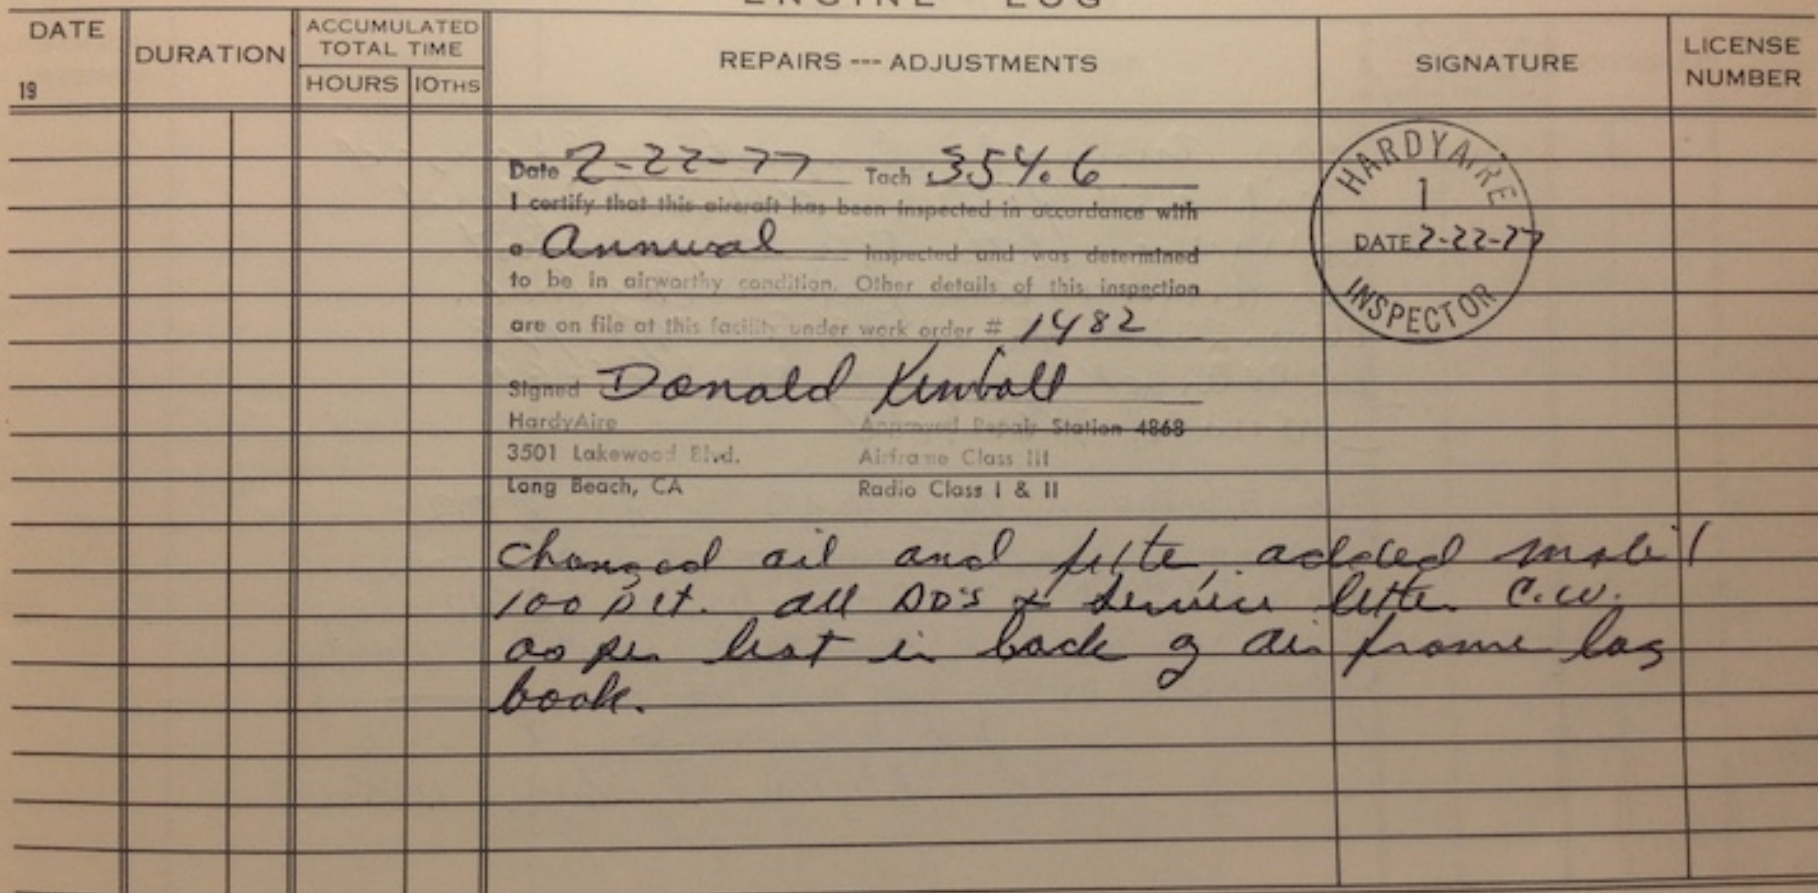 ENGINE LOG
DATE
19
DURATION
ACCUMULATED
TOTAL TIME
HOURS 10THS
REPAIRS --- ADJUSTMENTS
SIGNATURE
LICENSE
NUMBER
Date 2-22-77 Tach 354.6
I certify that this aircraft has been inspected in accordance with
a Annual inspected and was determined
to be in airworthy condition. Other details of this inspection
are on file at this facility under work order # 1482
Signed Donald Kimball
HardyAire Approved Repair Station 4868
3501 Lakewood Blvd. Airframe Class III
Long Beach, CA Radio Class I & II
HARDYAIRE
1
DATE 2-22-77
INSPECTOR
changed oil and filter, added mobil
100 all AD's & service letter C.W.
as per list in back of air frame log
book.